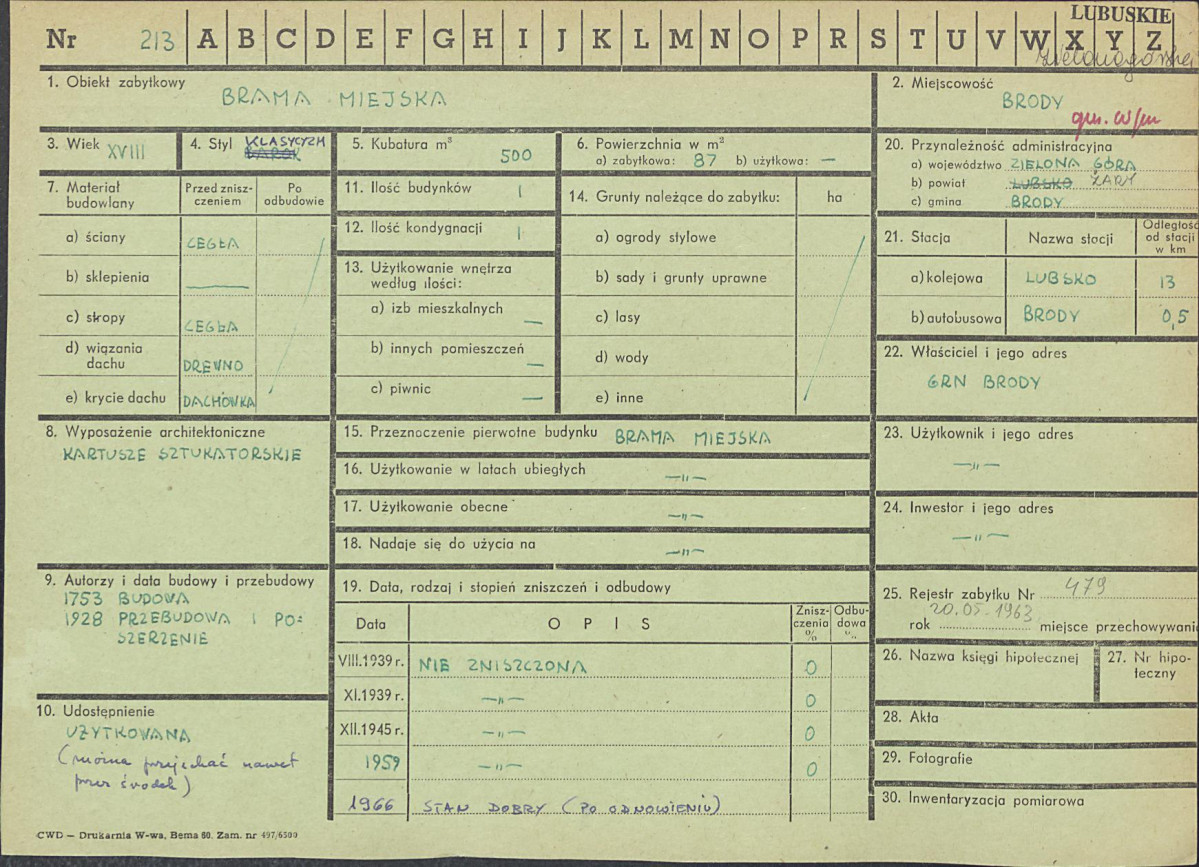 LUBUSKIE
Nr 213 A B C D E F G H I J K L M N O P R S T U V W X Y Z
zielonogórskie
1. Obiekt zabytkowy
BRAMA MIEJSKA
2. Miejscowość
BRODY
gm. w/m
3. Wiek XVIII
4. Styl KLASYCYZM
BAROK
5. Kubatura m³
500
6. Powierzchnia w m²
a) zabytkowa: 87 b) użytkowa: —
20. Przynależność administracyjna
a) województwo ZIELONA GÓRA
b) powiat LUBSKO ŻARY
c) gmina BRODY
7. Materiał budowlany
Przed zniszczeniem
Po odbudowie
a) ściany CEGŁA
b) sklepienia —
c) stropy CEGŁA
d) wiązania dachu DREWNO
e) krycie dachu DACHÓWKA
11. Ilość budynków 1
12. Ilość kondygnacji 1
13. Użytkowanie wnętrza
według ilości:
a) izb mieszkalnych —
b) innych pomieszczeń —
c) piwnic —
14. Grunty należące do zabytku: ha
a) ogrody stylowe
b) sady i grunty uprawne
c) lasy
d) wody
e) inne
21. Stacja Nazwa stacji Odległość od stacji w km
a) kolejowa LUBSKO 13
b) autobusowa BRODY 0,5
22. Właściciel i jego adres
GRN BRODY
8. Wyposażenie architektoniczne
KARTUSZE SZTUKATORSKIE
15. Przeznaczenie pierwotne budynku BRAMA MIEJSKA
16. Użytkowanie w latach ubiegłych —"—
17. Użytkowanie obecne —"—
18. Nadaje się do użycia na —"—
23. Użytkownik i jego adres
—"—
24. Inwestor i jego adres
—"—
9. Autorzy i data budowy i przebudowy
1753 BUDOWA
1928 PRZEBUDOWA I PO=
SZERZENIE
10. Udostępnienie
UŻYTKOWANA
(można przejechać nawet
przez środek)
19. Data, rodzaj i stopień zniszczeń i odbudowy
Data OPIS Zniszczenia % Odbudowa %
VIII.1939 r. NIE ZNISZCZONA 0
XI.1939 r. —"— 0
XII.1945 r. —"— 0
1959 —"— 0
1966 STAN DOBRY (PO ODNOWIENIU)
25. Rejestr zabytku Nr 479
20.05.1963
rok miejsce przechowywania
26. Nazwa księgi hipotecznej
27. Nr hipoteczny
28. Akta
29. Fotografie
30. Inwentaryzacja pomiarowa
CWD — Drukarnia W-wa, Bema 60. Zam. nr 497/6500